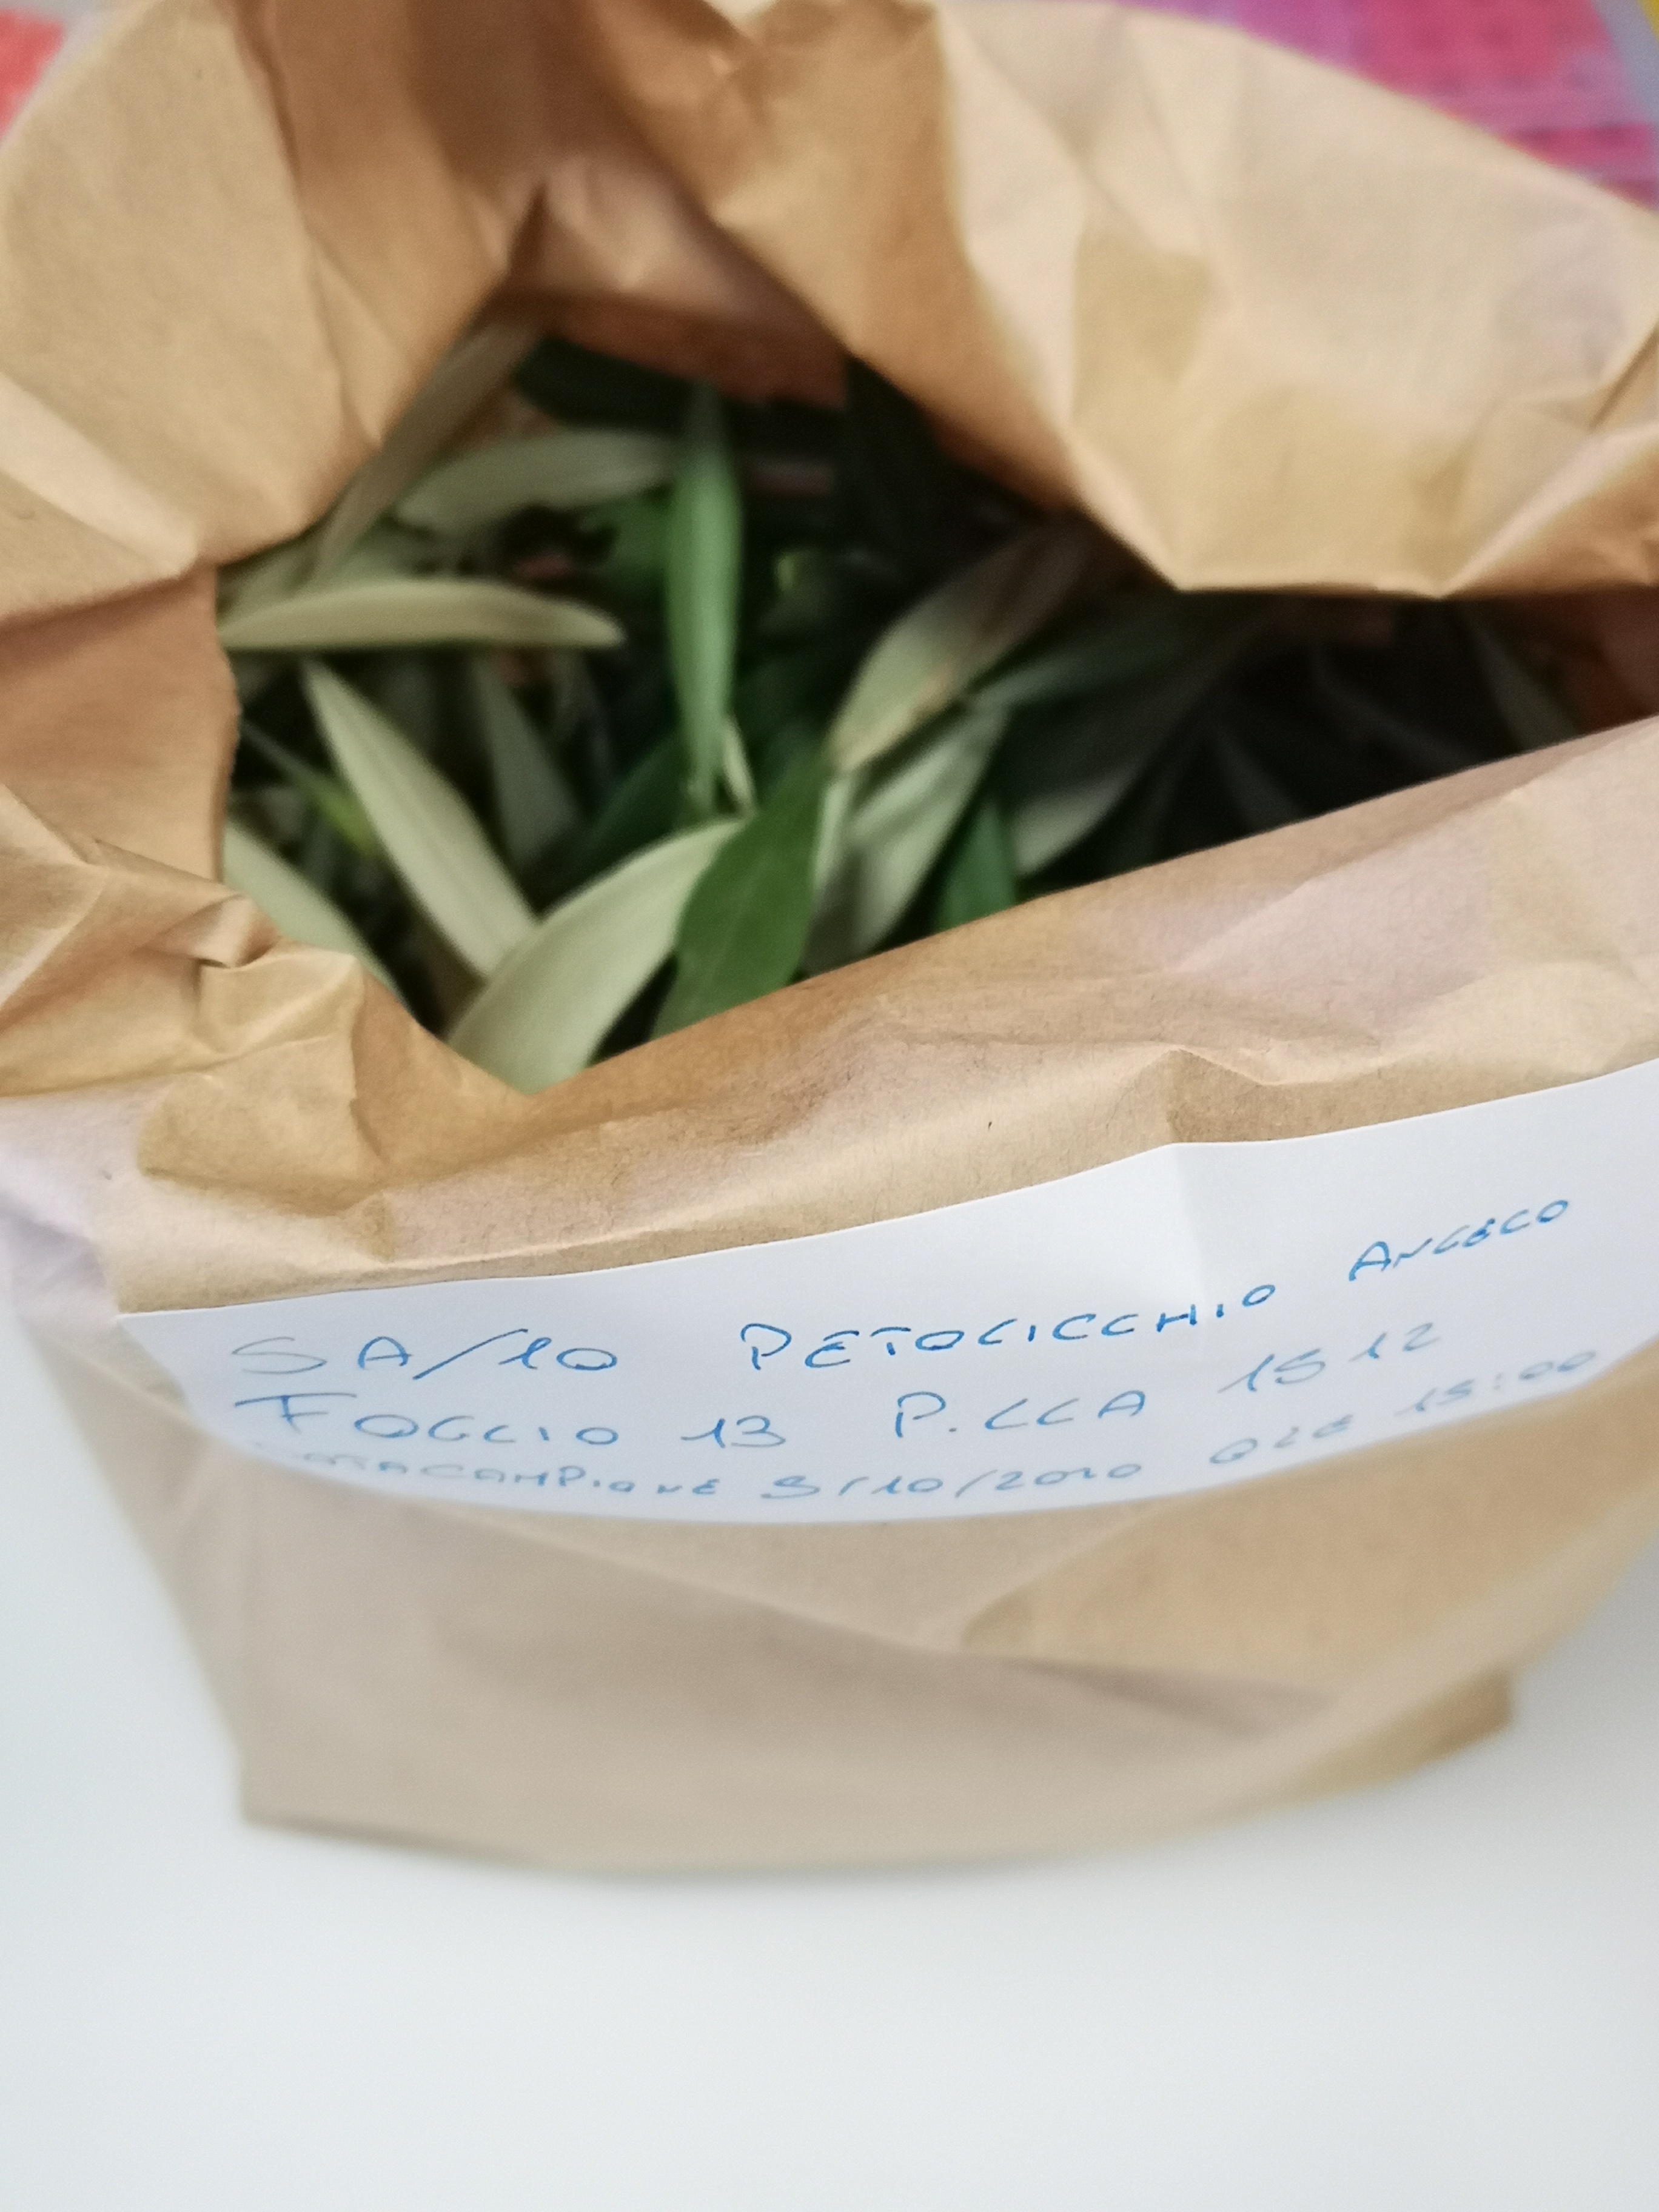 SA/10 PETOLICCHIO ANGELO
FOGLIO 13 P.LLA 1512
CAMPIONE 9/10/2020 ORE 15:00